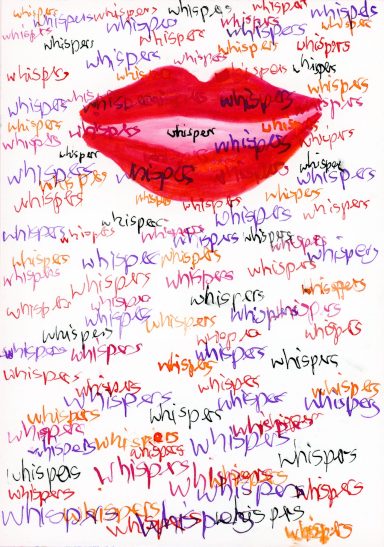 whispers whispers whispers whispers whispers whispers
whispers whispers whispers whispers whispers
whispers whispers whispers whispers
whispers whispers whispers whispers
whispers whispers whispers whispers whispers
whispers whispers whispers whispers
whispers whispers whispers whispers whispers
whispers whispers whispers whispers
whispers whispers whispers whispers whispers
whispers whispers whispers whispers
whispers whispers whispers whispers
whispers whispers whispers
whispers whispers whispers whispers whispers
whispers whispers whispers whispers
whispers whispers whispers whispers
whispers whispers whispers whispers
whispers whispers whispers whispers
whispers whispers whispers whispers
whispers whispers whispers whispers
whispers whispers whispers whispers
whispers whispers whispers whispers
whispers whispers whispers whispers
whispers whispers whispers
whispers whispers whispers whispers
whispers whispers whispers
whispers whispers whispers whispers
whispers whispers whispers whispers
whispers whispers whispers whispers whispers